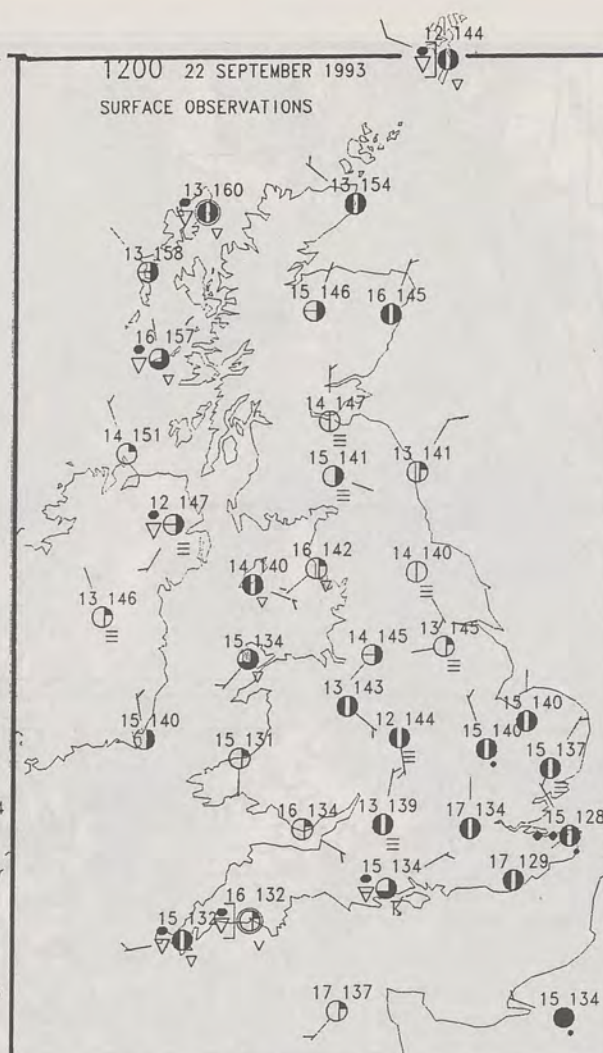 12 144
1200 22 SEPTEMBER 1993
SURFACE OBSERVATIONS
13 160
13 154
13 158
15 146
16 145
16 157
14 147
14 151
15 141
13 141
12 147
16 142
14 140
14 140
13 146
15 134
14 145
13 145
13 143
15 140
12 144
15 140
15 140
15 131
15 137
16 134
13 139
17 134
15 128
15 134
17 129
16 132
15 132
17 137
15 134